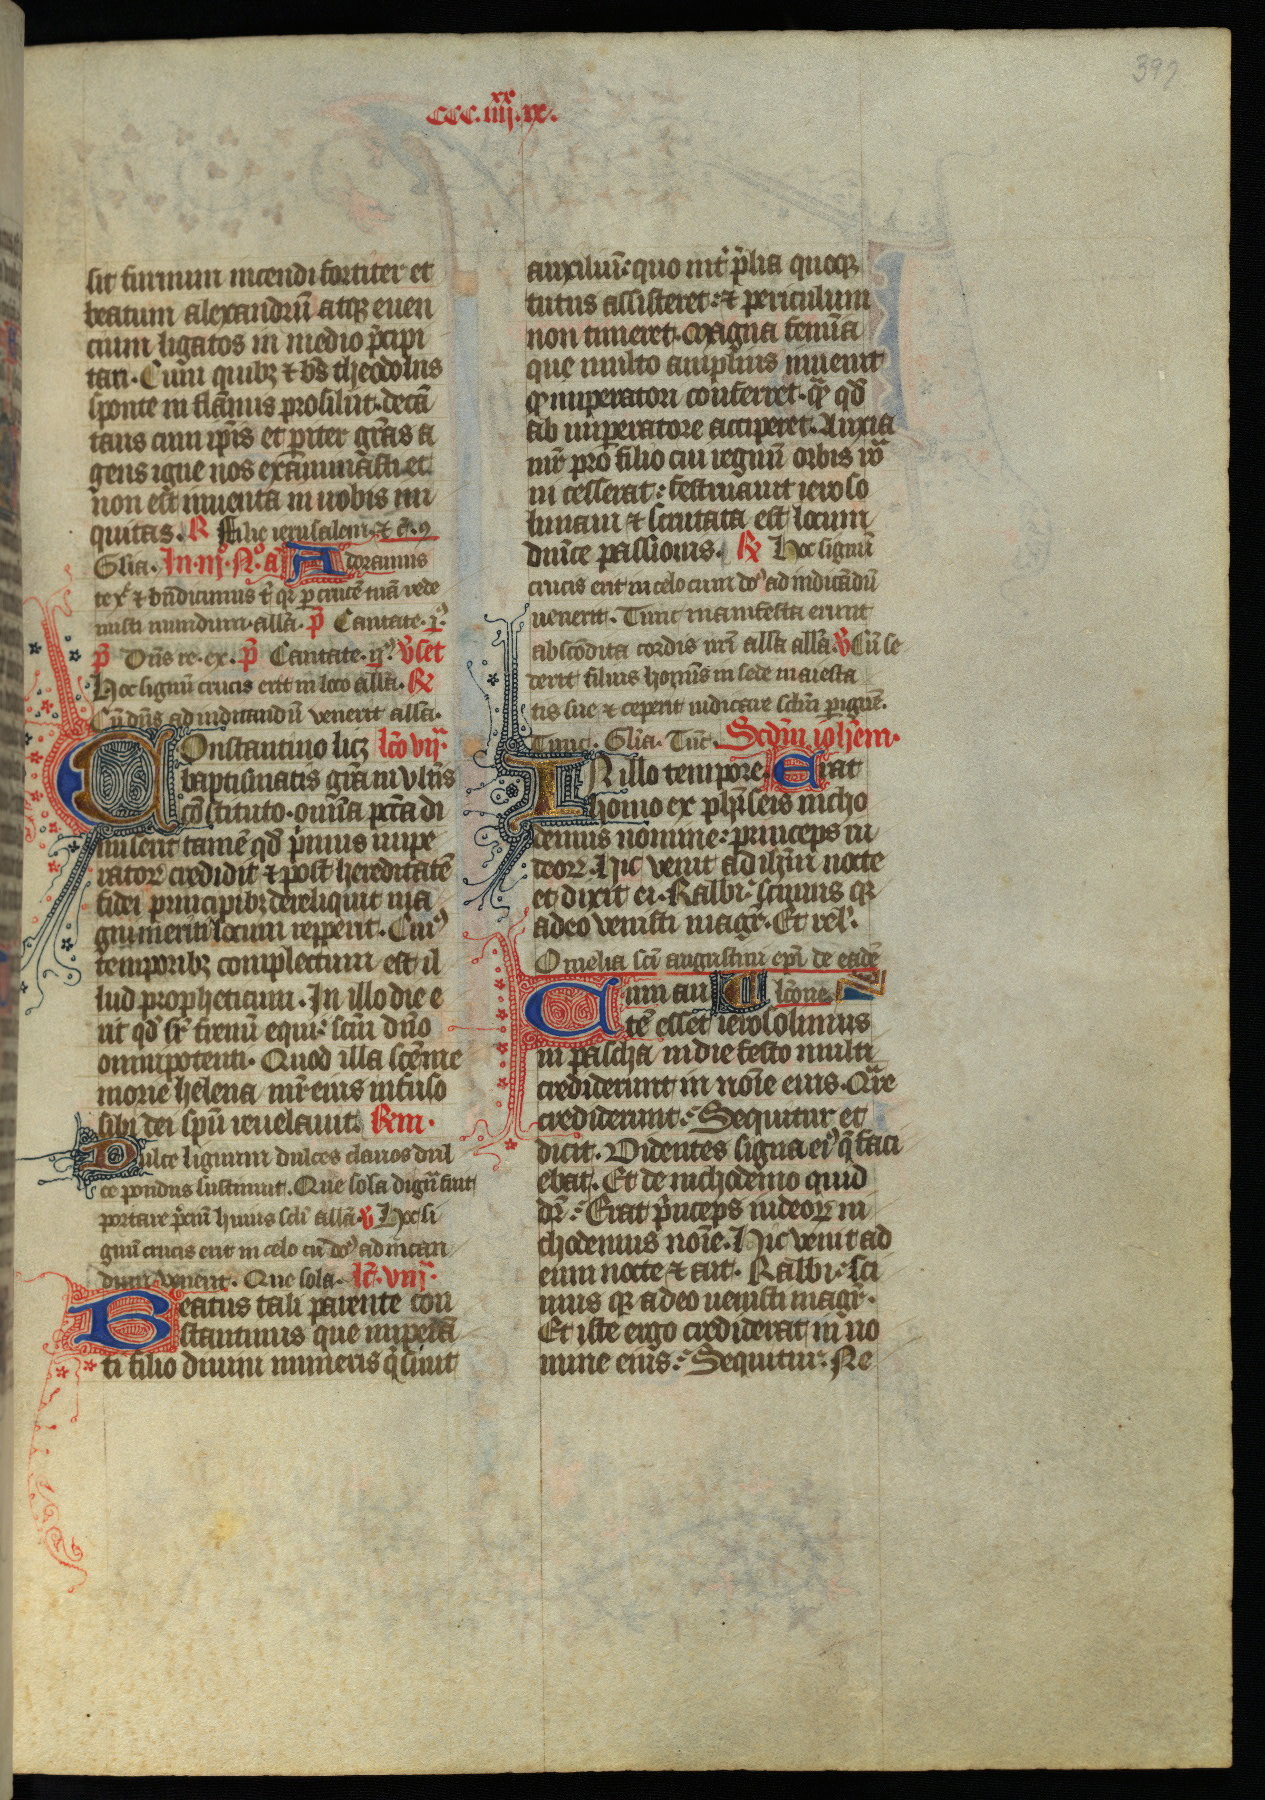 392
CCC.iiij.xx ix.
sit furnum incendi fortiter et
beatum alexandrū atqꝫ euen
cium ligatos in medio p̄cipi
tari. Cum quibꝫ ⁊ bs̄ theodolus
sponte in flāmis prosiliit. decā
tans cum ip̄is et pariter grās a
gens igne nos examinasti et
non est inuenta in nobis ini
quitas. R Filie ierusalem. ⁊ c̄.
Gl̄ia. In. iij. N. a Adoramus
te xp̄ ⁊ bn̄dicimus t̄ qr per crucē tuā rede
misti mundum. all̄a. p̄ Cantate. p̄.
p̄ Dn̄s re. ex. p̄ Cantate. ij. V̄set
Hoc signū crucis erit in celo all̄a. R
Cū dn̄s ad iudicandū venerit all̄a.
Constantino licꝫ lc̄o vij.
baptismatis grā in vltīs
cōstituto. omīa pctā di
miserit tamē qd̄ primus impe
ratorꝝ credidit ⁊ post hereditatē
fidei principibꝫ dereliquit ma
gni meriti locum repperit. Cuiꝰ
temporibꝫ completum est il
lud propheticum. In illo die e
rit qd̄ sr̄ frenū equi: scm̄ dn̄o
omnipotenti. Quod illa scē me
morie helena mr̄ eius infuso
sibi dei spū reuelauit. Rem.
Dulce lignum dulces clauos dul
ce pondus sustinuit. Que sola digna fuit
portare preciū huius scli all̄a. V̄ Hoc si
gnū crucis erit in celo cū dōs ad iudican
dum venerit. Que sola. lc̄. viij.
Beatus tali parente con
stantinus que imperā
ti filio diuini muneris q̄siuit
auxiliū: quo int̄ p̄lia quoqꝫ
tutus assisteret: ⁊ periculum
non timeret. Magna femīa
que multo amplius inuenit
qd̄ imperatori conferret. qm̄ qd̄
ab imperatore acciperet. Anxia
mr̄ pro filio cui regnū orbis ro
m cesserat: festinauit ieroso
limam ⁊ scrutata est locum
dn̄ice passionis. R Hoc signū
crucis erit in celo cum dōs ad iudicādū
venerit. Tunc manifesta erunt
abscōdita cordis nrī all̄a all̄a. V̄ Cū se
derit filius homīs in sede maiesta
tis sue ⁊ ceperit iudicare sclm̄ per ignē.
Tunc. Gl̄ia. Tūc. Scdm̄ ioh̄em.
In illo tempore. Erat
homo ex phīseis nicho
demus nomine: princeps iu
deorꝝ. Hic venit ad ih̄m nocte
et dixit ei. Rabbi: scimus qr
a deo venisti magr̄. Et rel̄.
Omelia scī augustini epī de eadē
Cum au lc̄one
tē esset ierosolimis
in pascha in die festo multi
crediderunt in noīe eius. Qre
crediderunt: Sequitur et
dicit. Videntes signa eiꝰ q̄ faci
ebat. Et de nichodemo quid
dr̄: Erat p̄nceps iudeorꝝ ni
chodemus noīe. Hic venit ad
eum nocte ⁊ ait. Rabbi: sci
mus qr a deo uenisti magr̄.
Et iste ergo crediderat in no
mine eius: Sequitur: Ne